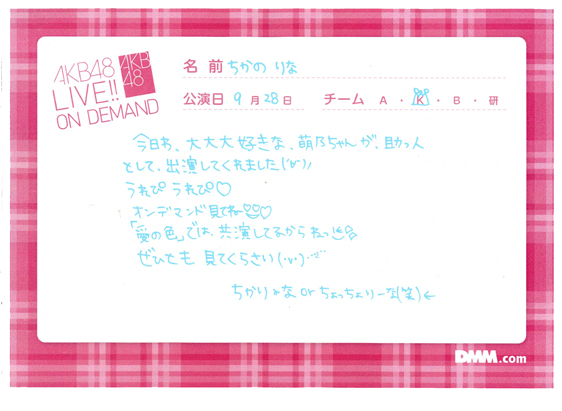 AKB48
LIVE!!
ON DEMAND
AKB
48
名前 ちかの りな
公演日 9月28日 チーム A・K・B・研
今日わ、大大大好きな、萌乃ちゃんが、助っ人
として、出演してくれました(
うれぴ うれぴ♡
オンデマンド見てね
「愛の色」では、共演してるからねっ
ぜひとも 見てくらさい
ちかりな or ちょっちょりーな(笑)←
DMM.com